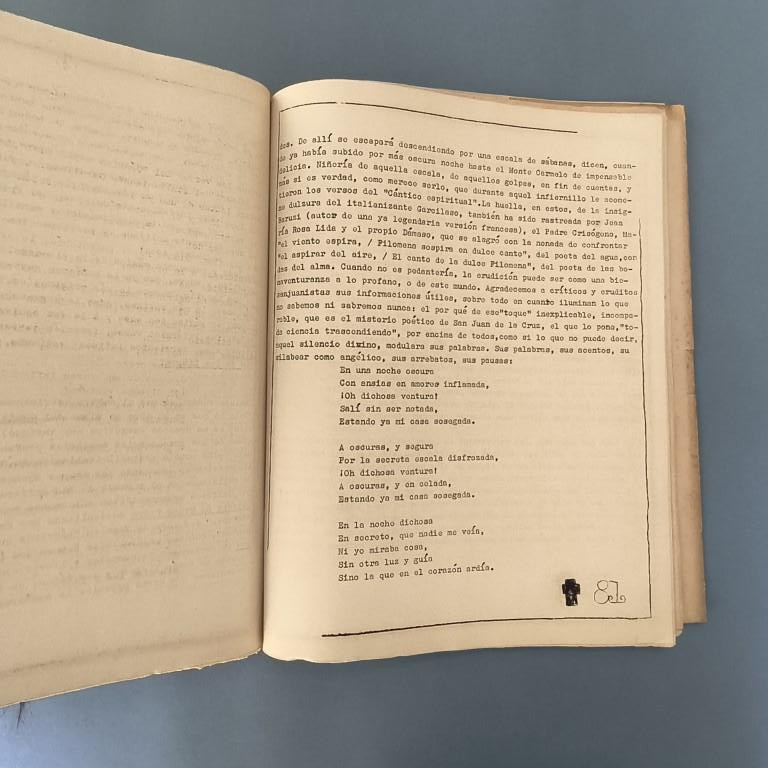 dos. De allí se escapará descendiendo por una escala de sábanas, dicen, cuan-
do ya había subido por más oscura noche hasta el Monte Carmelo de impensable
delicia. Niñería de aquella escala, de aquellos golpes, en fin de cuentas, y
más si es verdad, como merece serlo, que durante aquel infiernillo le acome-
tieron los versos del "Cántico espiritual".La huella, en estos, de la insig-
ne dulzura del italianizante Garcilaso, también ha sido rastreada por Jean
Baruzi (autor de una ya legendaria versión francesa), el Padre Crisógono, Ma-
ría Rosa Lida y el propio Dámaso, que se alegró con la nonada de confrontar
"el viento espira, / Filomena sospira en dulce canto", del poeta del agua,con
"el aspirar del aire, / El canto de la dulce Filomena", del poeta de las bo-
das del alma. Cuando no es pedantería, la erudición puede ser como una bie-
naventuranza a lo profano, o de este mundo. Agradecemos a críticos y eruditos
sanjuanistas sus informaciones útiles, sobre todo en cuanto iluminan lo que
no sabemos ni sabremos nunca: el por qué de ese"toque" inexplicable, incompa-
rable, que es el misterio poético de San Juan de la Cruz, el que lo pone,"to-
da ciencia trascendiendo", por encima de todos,como si lo que no puede decir,
aquel silencio divino, modulara sus palabras. Sus palabras, sus acentos, su
silabear como angélico, sus arrebatos, sus pausas:
En una noche oscura
Con ansias en amores inflamada,
¡Oh dichosa ventura!
Salí sin ser notada,
Estando ya mi casa sosegada.
A oscuras, y segura
Por la secreta escala disfrazada,
¡Oh dichosa ventura!
A oscuras, y en celada,
Estando ya mi casa sosegada.
En la noche dichosa
En secreto, que nadie me veía,
Ni yo miraba cosa,
Sin otra luz y guía
Sino la que en el corazón ardía.